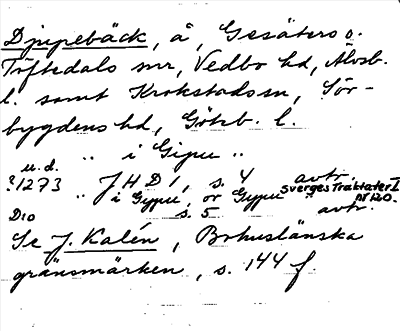 Djupebäck, å, Gesäters o.
Töftedals snr, Vedbo hd, Älvsb.
l. samt Krokstads sn, Sör-
bygdens hd, Götb. l.
u.d. " i Gipu "
?1273 JHD 1, s. 4 avtr.
" i Gypu, or Gypu " Sverges Traktater I nr 120.
Dio s. 5 avtr.
Se J. Kalén, Bohuslänska
gränsmärken, s. 144 f.